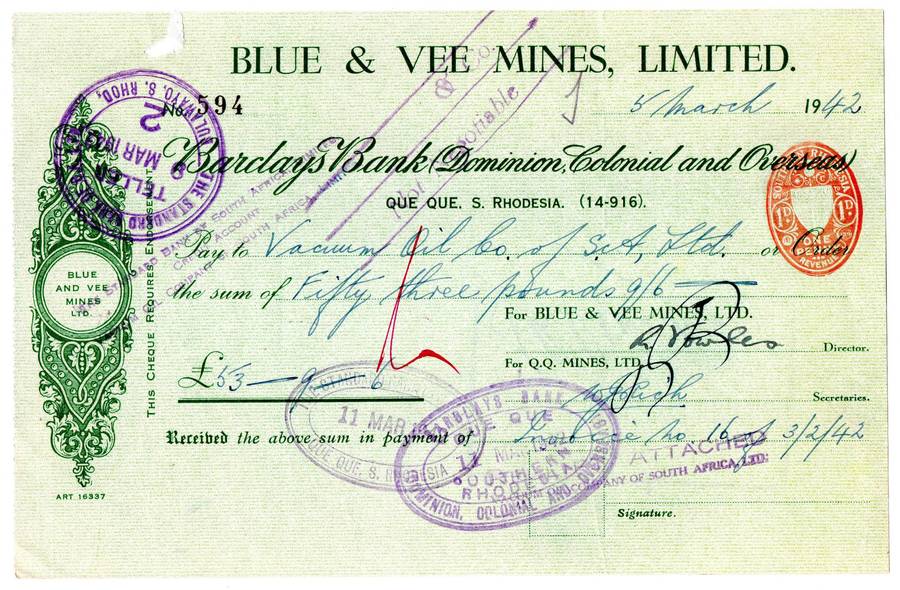 BLUE & VEE MINES, LIMITED.
No. 594
5 March 1942
Barclays Bank (Dominion, Colonial and Overseas)
QUE QUE, S. RHODESIA. (14-916).
& Co.
Not Negotiable
THE STANDARD
BULAWAYO, S. RHOD,
TELLER
9 MAR 1942
2
SOUTH AFRICA
ACCOUNT
ONE PENNY
REVENUE
1D. 1D.
Pay to Vacuum Oil Co. of S.A, Ltd. or Order
the sum of Fifty three pounds 9/6
BLUE
AND VEE
MINES
LTD.
THIS CHEQUE REQUIRES ENDORSEMENT
For BLUE & VEE MINES, LTD.
Director.
For Q.Q. MINES, LTD.
£53 – 9 – 6
Secretaries.
THE STANDARD
11 MAR
QUE QUE, S. RHODESIA
BARCLAYS BANK
QUE QUE
11 MAR
SOUTHERN
RHODESIA
DOMINION, COLONIAL AND OVERSEAS
Received the above sum in payment of Invoice no. 16 of 3/2/42
ATTACHED
COMPANY OF SOUTH AFRICA, LTD.
Signature.
ART 16337